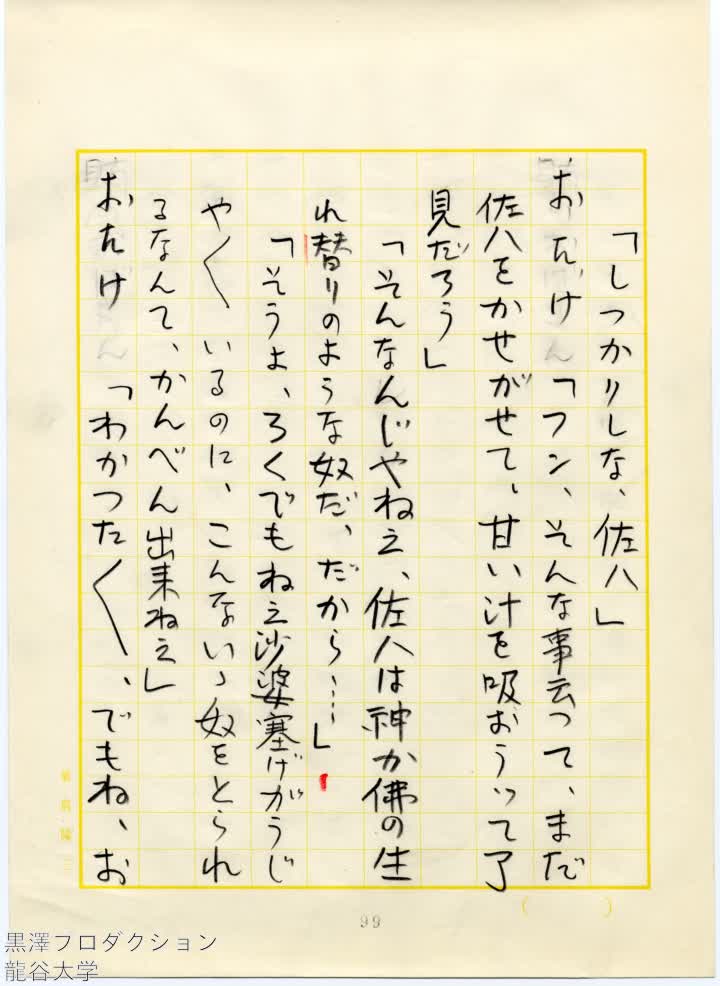 「しつかりしな、佐八」
おたけ「フン、そんな事云つて、まだ
佐八をかせがせて、甘い汁を吸おうつて了
見だろう」
「そんなんじやねえ、佐八は神か佛の生
れ替りのような奴だ、だから……」
「そうよ、ろくでもねえ沙婆塞げがうじ
や〱いるのに、こんないゝ奴をとられ
るなんて、かんべん出来ねえ」
おたけ「わかつた〱、でもね、お
99
黒澤プロダクション
龍谷大学